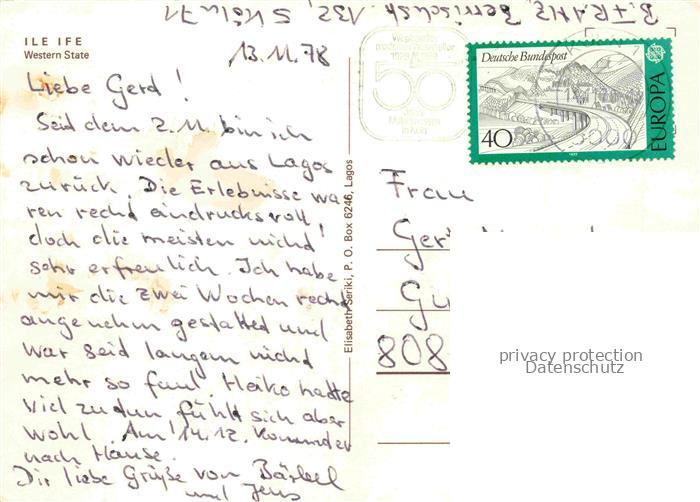 B. FRANZ, Berrischstr. 132, 5 Köln 71
ILE IFE
Western State
13.11.78
Liebe Gerd !
Seid dem 2.11. bin ich
schon wieder aus Lagos
zurück. Die Erlebnisse wa
ren recht eindrucksvoll!
doch die meisten nicht
sehr erfreulich. Ich habe
mir die zwei Wochen recht
angenehm gestaltet und
war seid langem nicht
mehr so faul. Heiko hatte
viel zu tun fühlt sich aber
wohl. Am 14.12. kommt er
nach Hause.
Dir liebe Grüße von Bärbel
und Jens
Elisabeth Seriki, P. O. Box 6246, Lagos
50
Jahre
in Köln
Deutsche Bundespost
40
EUROPA
1977
Frau
808
privacy protection
Datenschutz